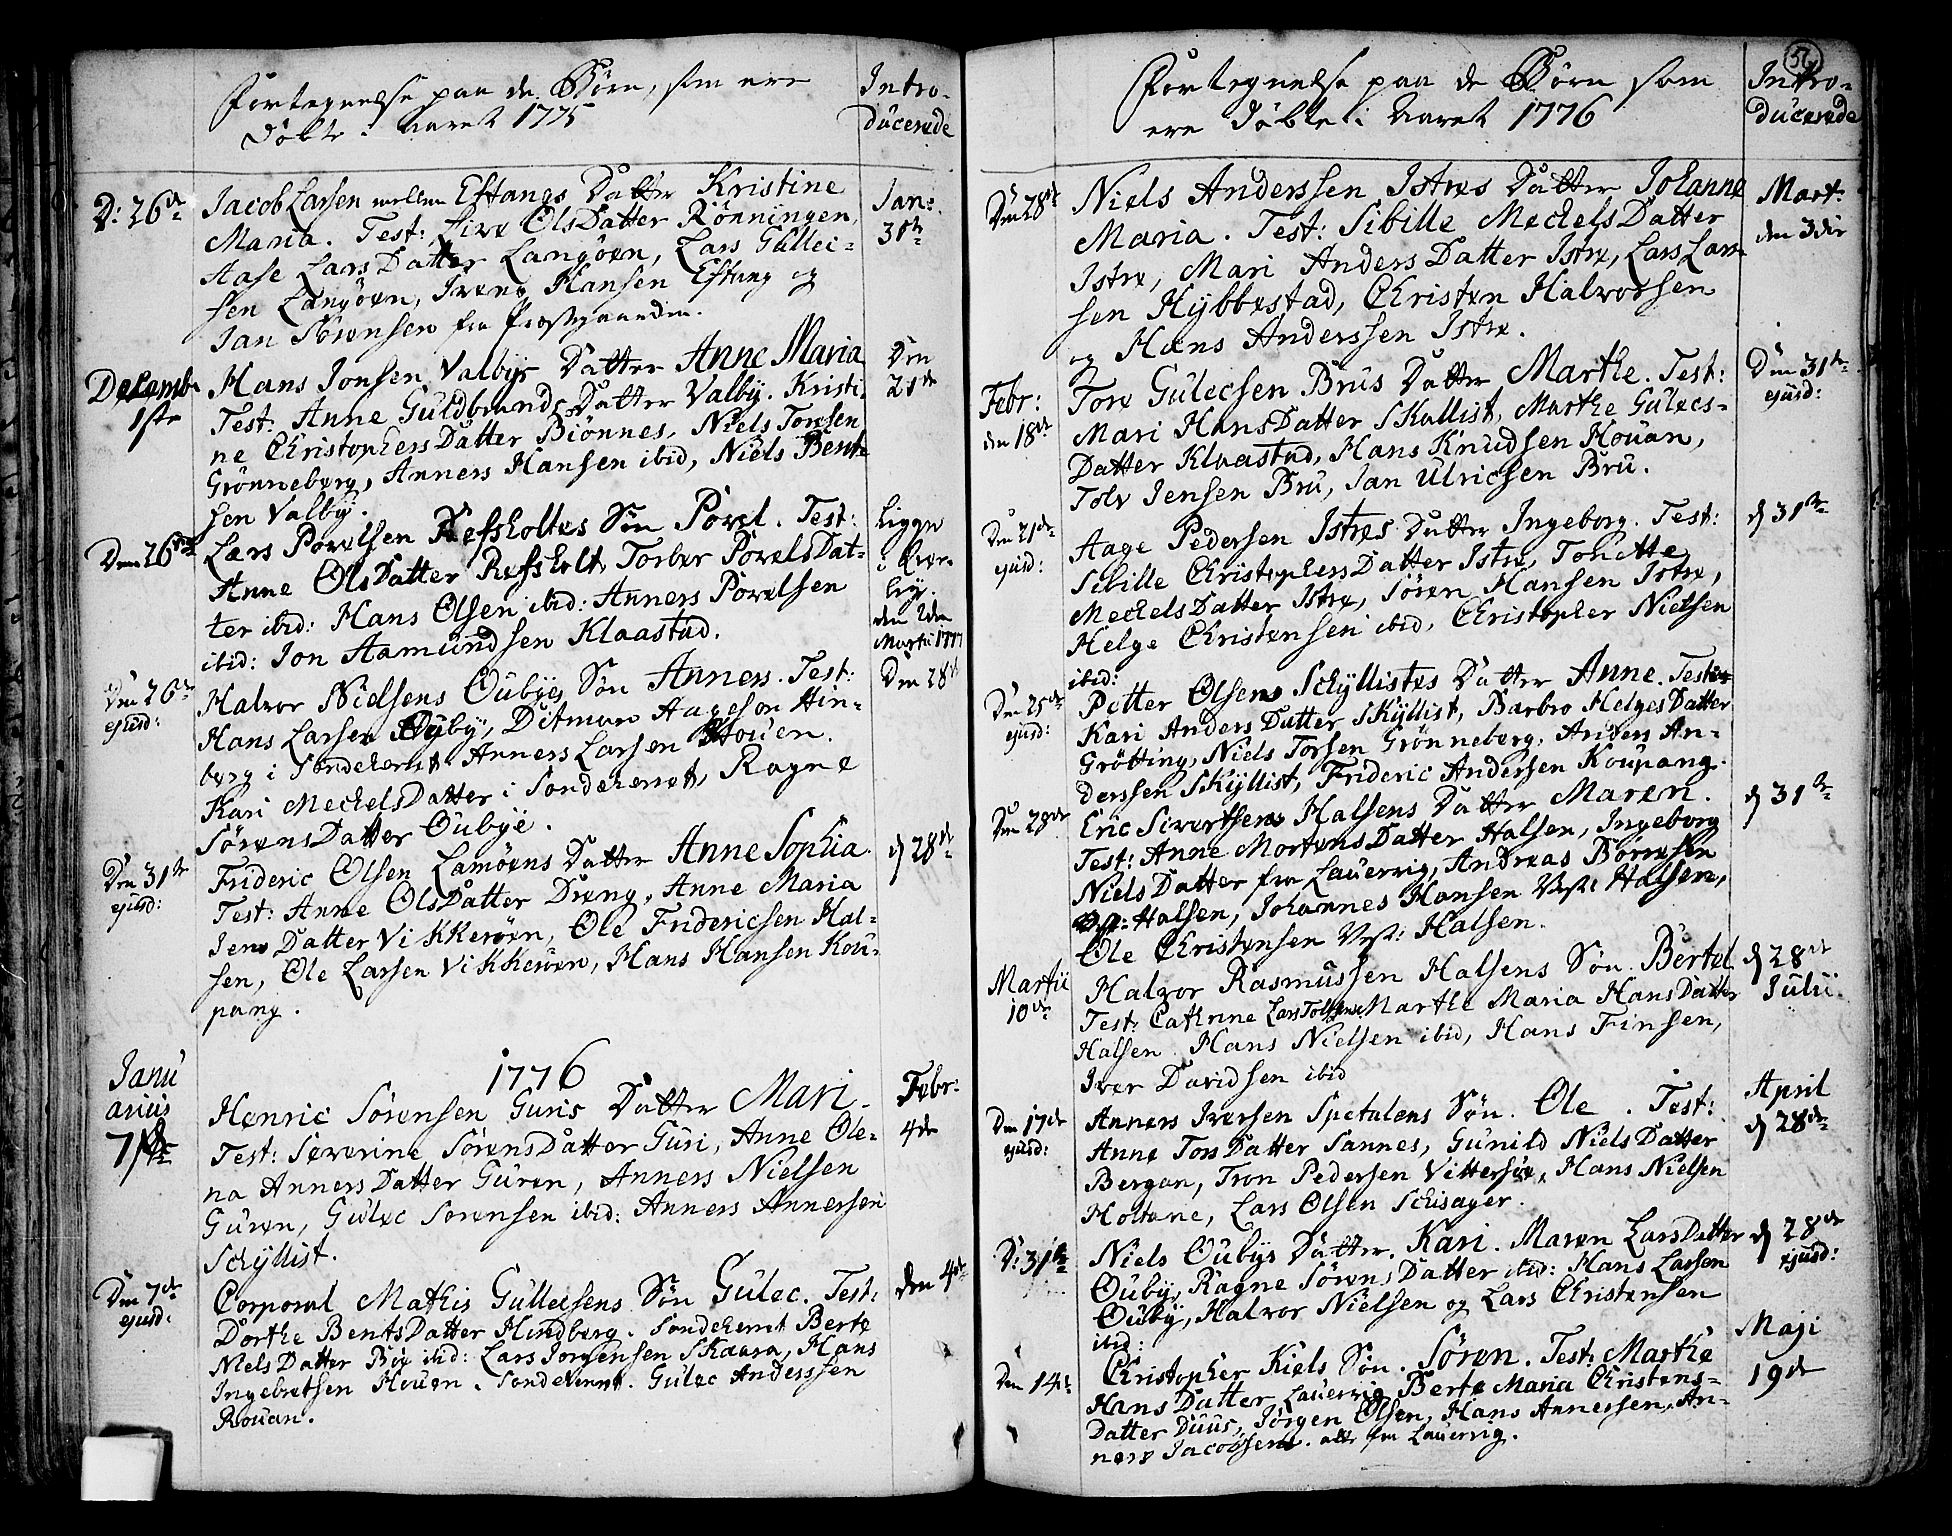 Fortegnelse paa de Börn, som ere
Döbte i Aaret 1775
Intro-
ducerede
D: 26de
Jacob Larsen mellem Eftangs Datter Kristine
Maria. Test: Live OlsDatter Rönningen,
Aase LarsDatter Langöen, Lars Gullei-
sen Langöen, Hansen Eftang og
Jan Sörensen fra Præstegaarden.
Jan:
31te
Decemb:
1ste
Hans Jonsen Valbÿs Datter Anne Maria
Test: Anne GuldbrandsDatter Valbÿ. Kristi-
ne ChristophersDatter Biönnes, Niels Torsen
Grönneberg, Anners Hansen ibid, Niels Bent-
sen Valbÿ.
Den
21de
Den 26de
Lars Povelsen Refsholtes Sön Povel. Test:
Anne OlsDatter Refsholt, Torber PovelsDat-
ter ibid: Hans Olsen ibid: Anners Povelsen
ibid: Jon Aamundsen Klaastad.
Ligge
i
den 2den
Martii 1777
Den 26de
ejusd:
Halvor Nielsens Oubÿes Sön Anners. Test:
Hans Larsen Oubÿ, Ditman Aageson Hin-
berg i Sandeherret Anners Larsen Houen.
Kari MechelsDatter i Sandeherret, Ragne
SörensDatter Oubÿe.
Den 28de
Den 31te
ejusd:
Frideric Olsen Lamöens Datter Anne Sophia.
Test: Anne OlsDatter Dreng, Anne Maria
JensDatter Vikkeröen, Ole Fridericsen Hal-
sen, Ole Larsen Vikkeröen, Hans Hansen Kou-
pang.
d 28de
1776
Janu
arius
7de
Henric Sörensen Guris Datter Mari.
Test: Severine SörensDatter Guri, Anne Ole-
na AnnersDatter Guren, Anners Nielsen
Guren, Gulec Sörensen ibid: Anners Annersen
Schÿllist.
Febr:
4de
Den 7de
ejusd:
Corporal Mathis Gullecsens Sön Gulec. Test:
Dorthe BentsDatter Hindberg. Sandeherret Berte
NielsDatter Böe ibid: Lars Jorgensen Skaara, Hans
Ingebretsen Houen. Sandeherret. Gulec Anderssen
Rouan.
den 4de
56
Fortegnelse paa de Börn som
ere Döbte i Aaret 1776
Intro-
ducerede
Den 28de
Niels Anderssen Istres Datter Johanne
Maria. Test: Sibille MechelsDatter
Istre, Mari AndersDatter Istre, Lars Lars-
sen Hÿbbestad, Christen Halvorsen
og Hans Anderssen Istre.
Mart:
den 3die
Febr:
den 18de
Tore Gulecsen Brus Datter Marthe. Test:
Mari HansDatter Skallist, Marthe Gulecs-
Datter Klaastad, Hans Knudsen Houan,
Tolv Jensen Bru, Jan Ulricsen Bru.
Den 31te
ejusd:
Den 21de
ejusd:
Aage Pedersen Istres Datter Ingeborg. Test:
Sibille ChristophersDatter Istre, Tonette
MechelsDatter Istre, Sören Hansen Istre,
Helge Christensen ibid, Christopher Nielsen
ibid:
d 31te
Den 25de
ejusd:
Petter Olsens Schÿllistes Datter Anne. Test:
Kari AndersDatter Skÿllist, Barbro HelgesDatter
Grötting, Niels Torsen Grönneberg, Anders An-
derssen Skÿllist, Frideric Andersen Koupang.
Den 28de
Eric Sivertsens Halsens Datter Maren.
Test: Anne MortensDatter Halsen, Ingeborg
NielsDatter fra Lauervig, Andreas Börresen
Vest: Halsen, Johannes Hansen Vest: Halsen,
Ole Christensen Vest: Halsen.
d 31te
Martii
10de
Halvor Rasmussen Halsens Sön Bertel
Test: Cathrine Lars Marthe Maria HansDatter
Halsen Hans Nielsen ibid, Hans Finsen,
Iver Davidsen ibid
d 28de
Julii.
Den 17de
ejusd:
Anners Iversen Spetalens Sön. Ole. Test:
Anne TorsDatter Sannes, Gunild NielsDatter
Bergan, Tron Pedersen Vittersöe, Hans Nielsen
Holtene, Lars Olsen Schisager.
April
d 28de
D: 31te
Niels Oubÿs Datter. Kari. Maren LarsDatter
Oubÿ, Ragne SörensDatter ibid: Hans Larsen
Oubÿ, Halvor Nielsen og Lars Christensen
ibid:
d 28de
ejusd:
Den 14de
Christopher Kiels Sön. Sören. Test: Marthe
HansDatter Lauervig Berte Maria Christens-
Datter Duus, Jörgen Olsen, Hans Annersen, An-
ners Jacobsen. alle fra Lauervig.
Maji
19de